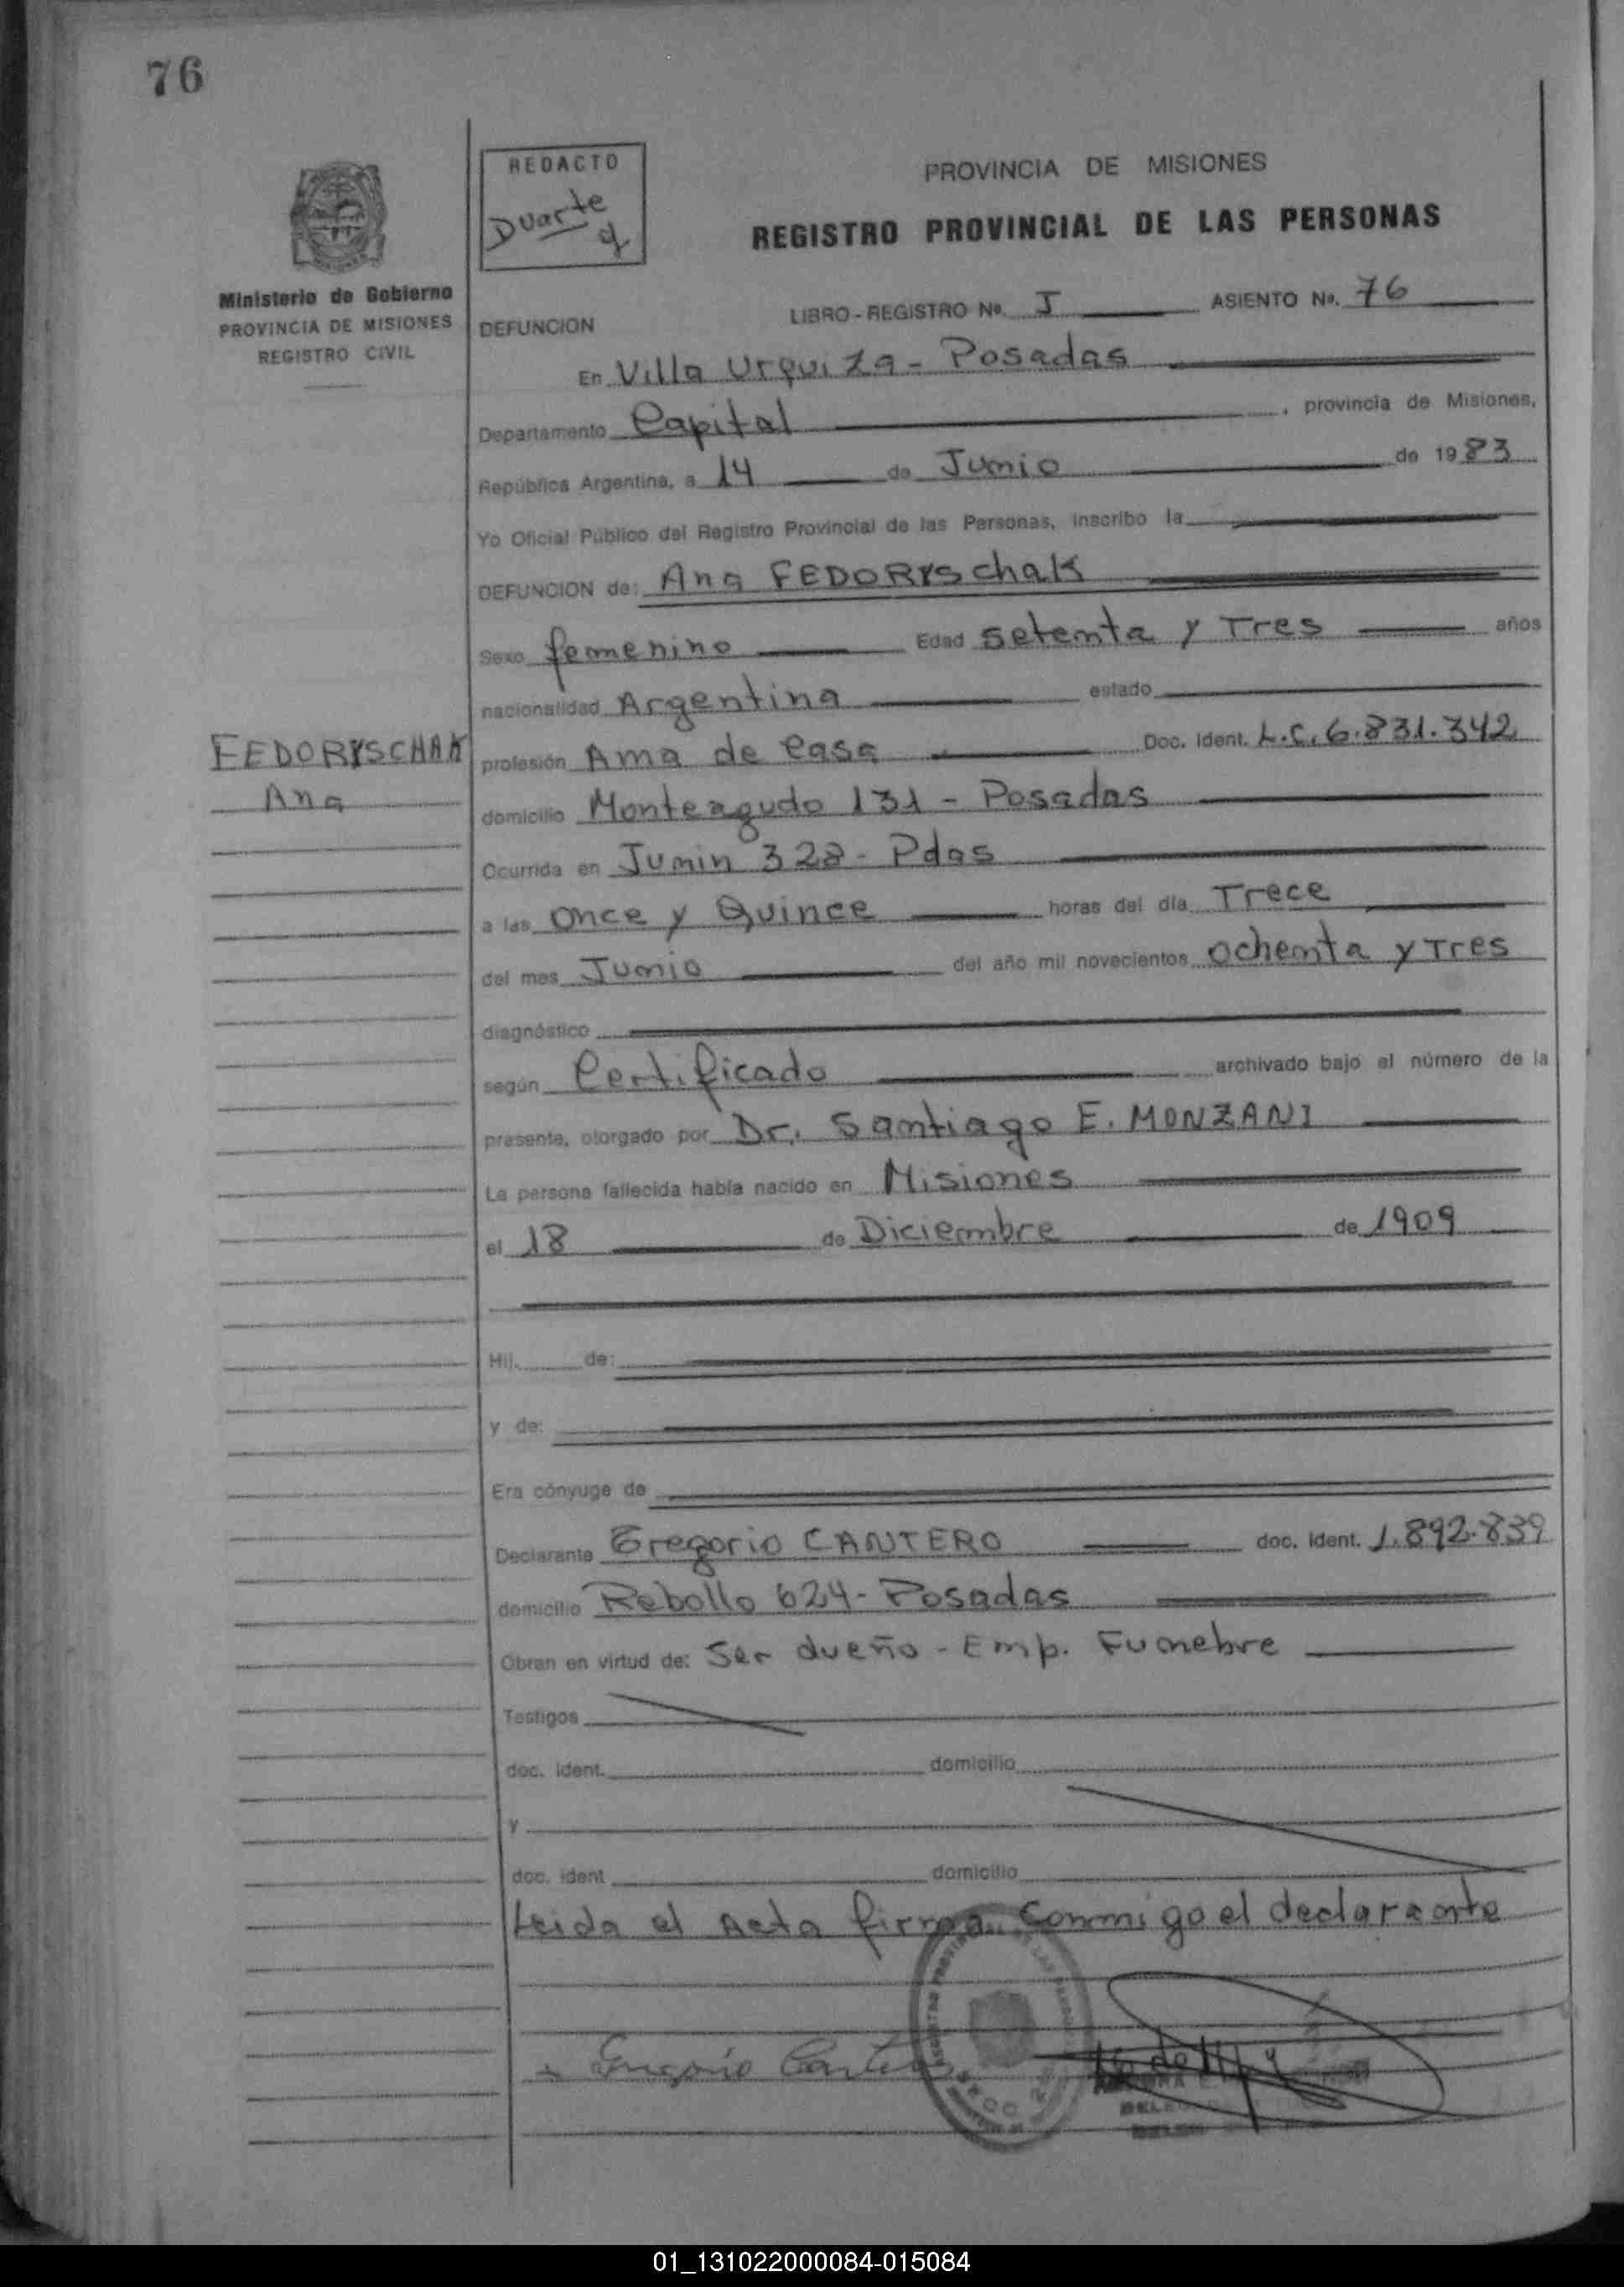 76
REDACTO
Duarte
PROVINCIA DE MISIONES
REGISTRO PROVINCIAL DE LAS PERSONAS
Ministerio de Gobierno
PROVINCIA DE MISIONES
REGISTRO CIVIL
DEFUNCION LIBRO-REGISTRO No. I ASIENTO No. 76
En Villa Urquiza - Posadas
Departamento Capital, provincia de Misiones,
República Argentina, a 14 de Junio de 1983
Yo Oficial Público del Registro Provincial de las Personas, inscribo la
DEFUNCION de: Ana FEDORYSchak
Sexo femenino Edad setenta y Tres años
nacionalidad Argentina estado
FEDORYSCHAK
Ana
profesión Ama de Casa Doc. Ident. L.C. 6.831.342
domicilio Monteagudo 131 - Posadas
Ocurrida en Junin 328 - Pdas
a las Once y Quince horas del día Trece
del mes Junio del año mil novecientos ochenta y Tres
diagnóstico
según Certificado archivado bajo el número de la
presente, otorgado por Dr. Santiago E. MONZANI
La persona fallecida había nacido en Misiones
el 18 de Diciembre de 1909
Hij. de:
y de:
Era cónyuge de
Declarante Gregorio CANTERO doc. Ident. 1.892.839
domicilio Rebollo 624 - Posadas
Obran en virtud de: Ser dueño - Emp. Funebre
Testigos
doc. Ident. domicilio
y
doc. ident domicilio
Leida el Acta firma conmigo el declarante
Gregorio Cantero
01_131022000084-015084